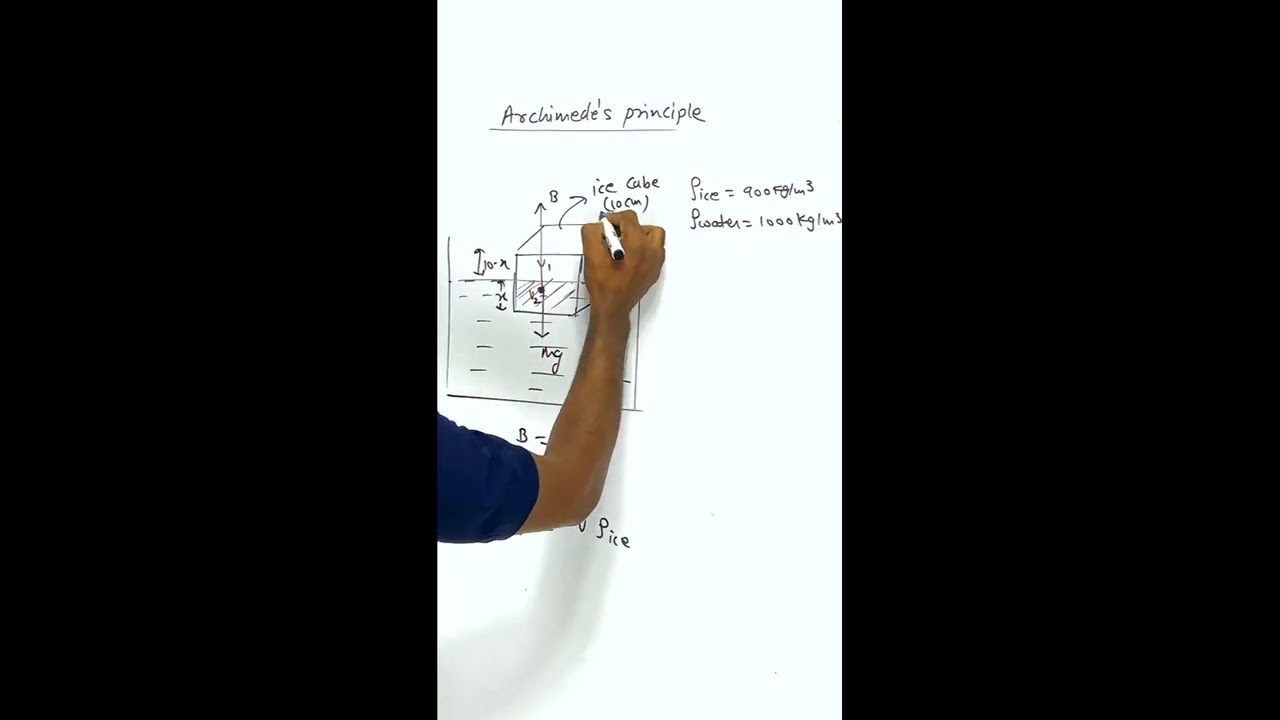 Archimede's principle
B
ice cube
(10cm)
ρice = 900 kg/m³
ρwater = 1000 kg/m³
10-x
x
mg
B =
ρice